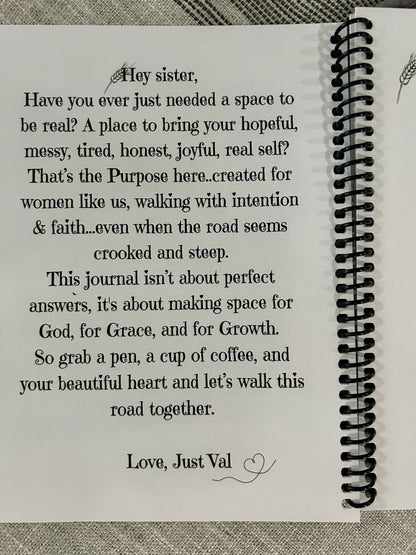 Hey sister,
Have you ever just needed a space to
be real? A place to bring your hopeful,
messy, tired, honest, joyful, real self?
That's the Purpose here..created for
women like us, walking with intention
& faith...even when the road seems
crooked and steep.
This journal isn't about perfect
answers, it's about making space for
God, for Grace, and for Growth.
So grab a pen, a cup of coffee, and
your beautiful heart and let's walk this
road together.
Love, Just Val